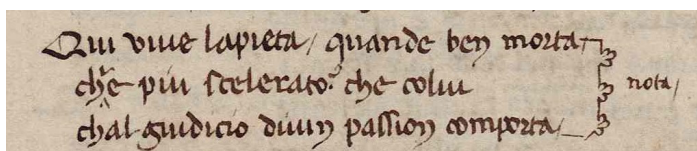 Qui viue lapieta/ quande ben morta/
ch'e piu scelerato? che colui nota/
chal giudicio diuin passion comporta/